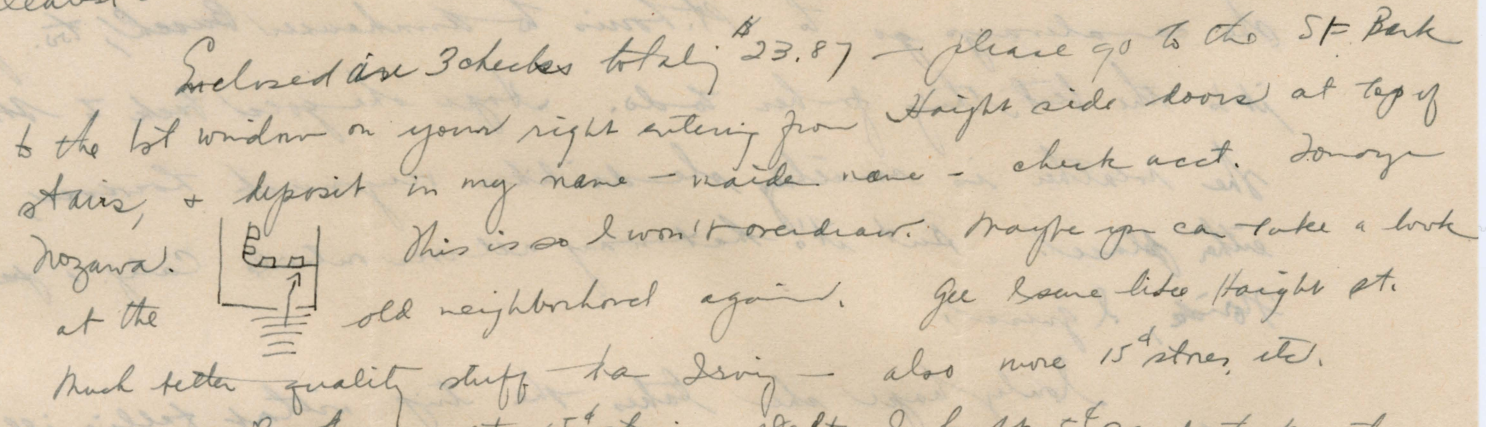 Enclosed are 3 checks totaling $23.87 — please go to the SF Bank
to the 1st window on your right entering from Haight side doors at top of
stairs, + deposit in my name — maiden name — check acct. Tomoye
Nozawa. This is so I won't overdraw. Maybe you can take a look
at the old neighborhood again. Gee I sure like Haight st.
Much better quality stuff than Irving — also more 15¢ stores, etc.